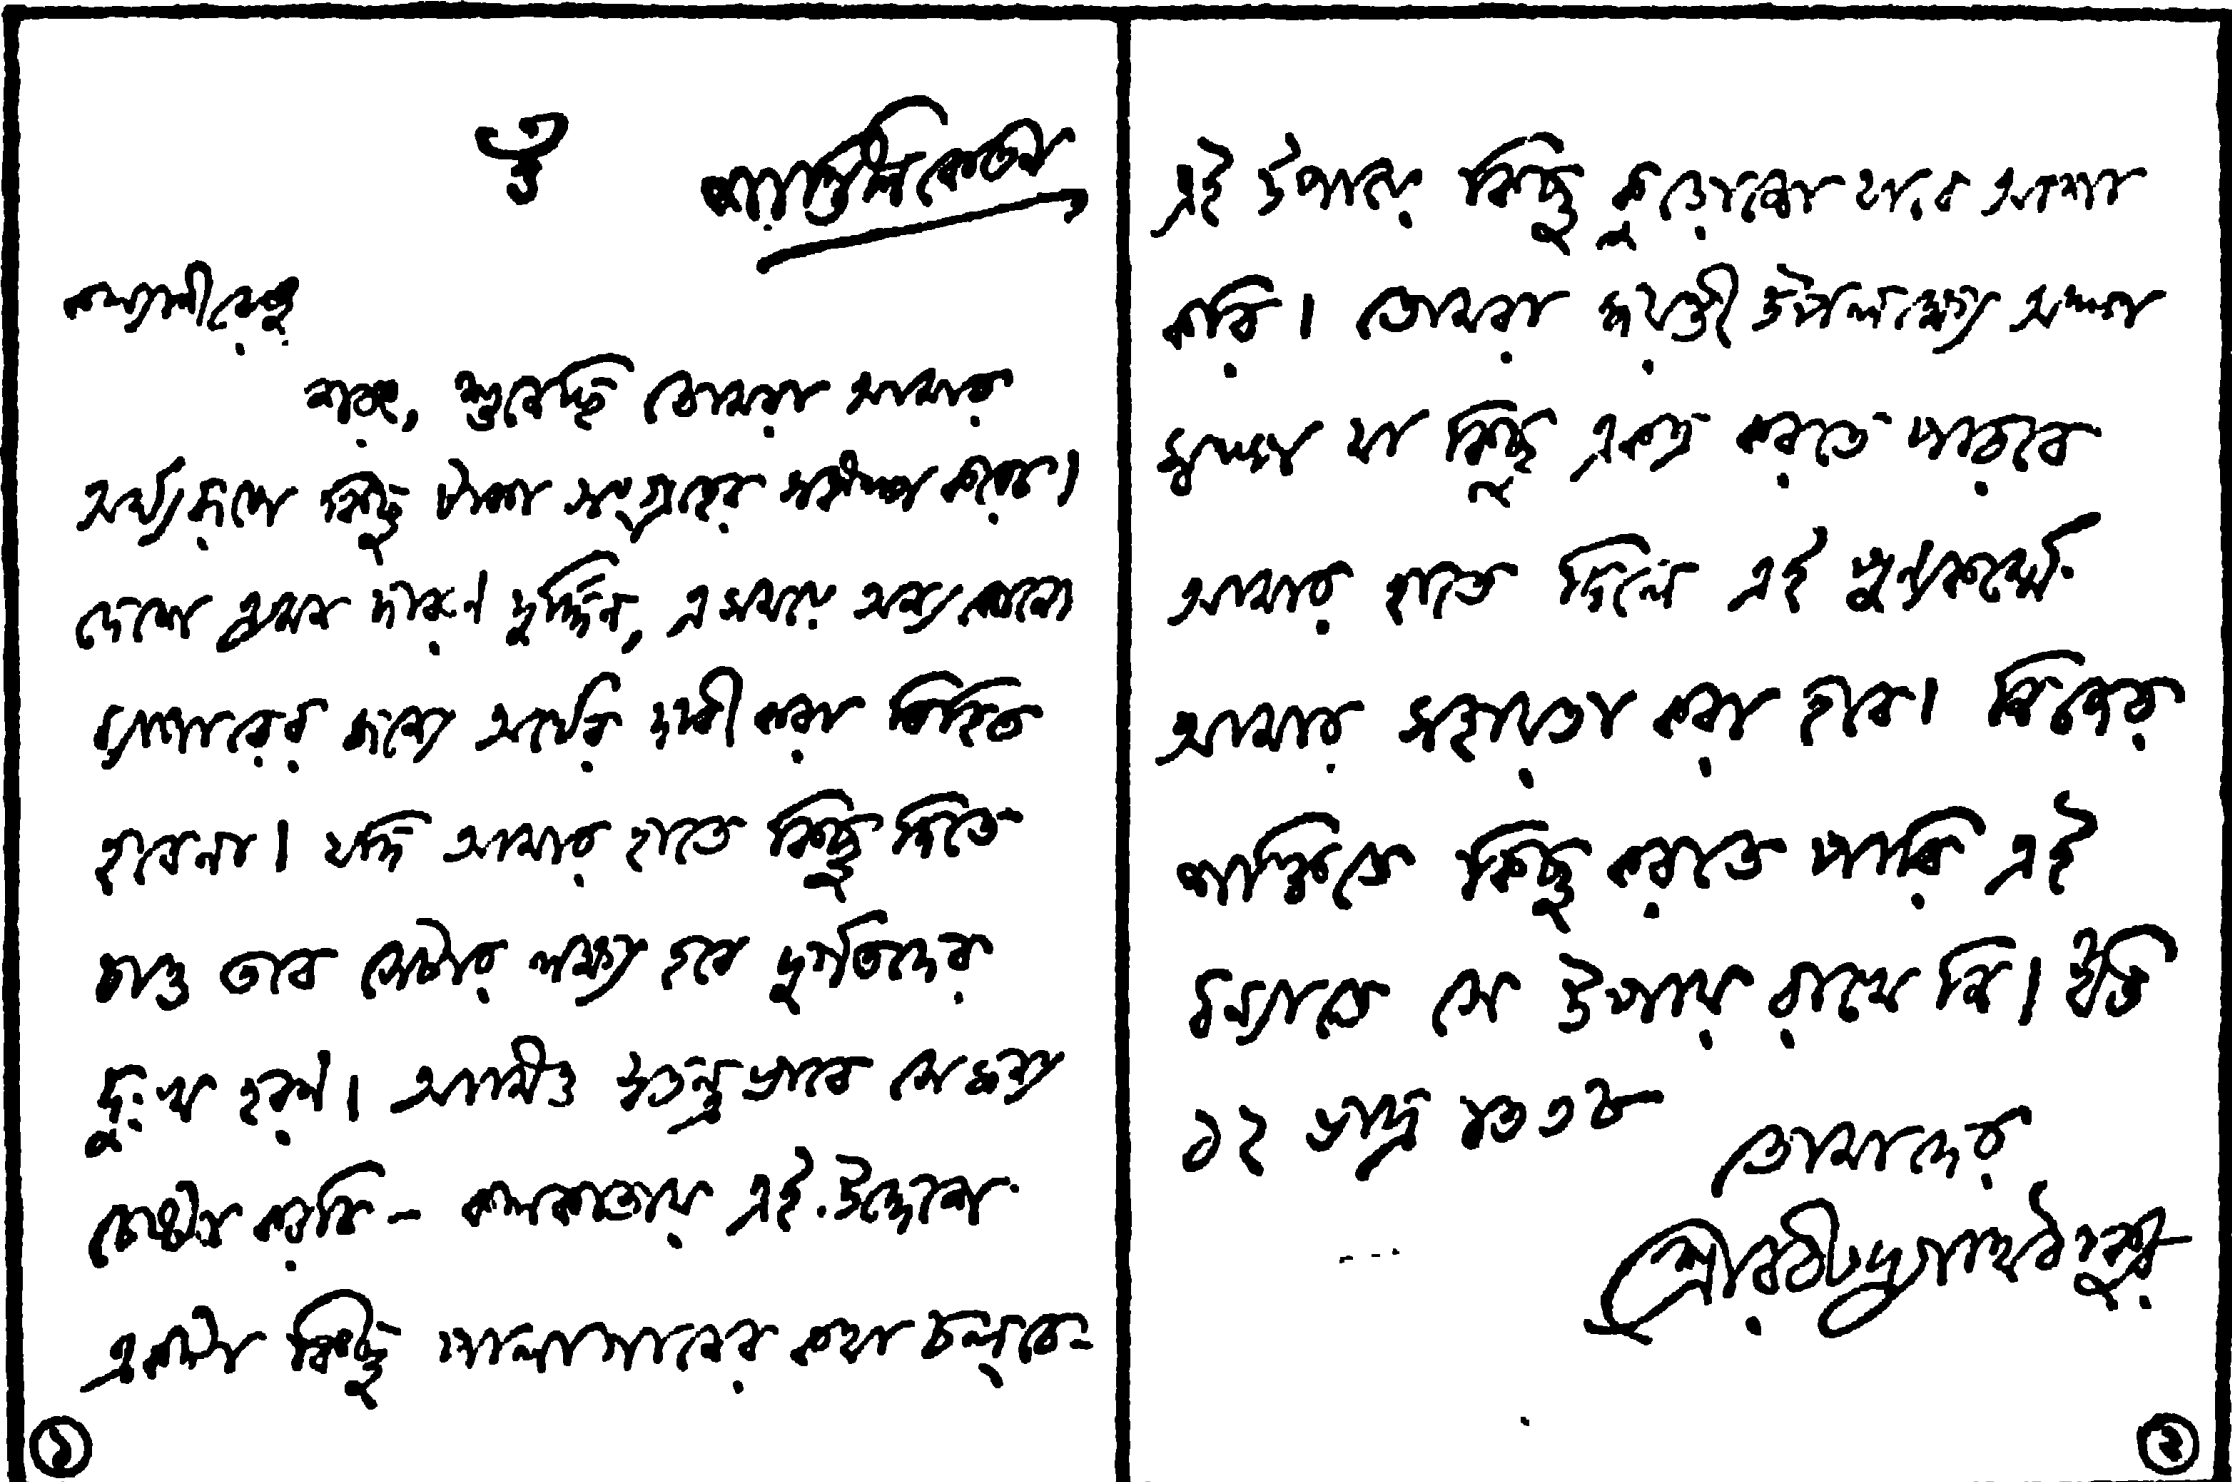 ওঁ
শান্তিনিকেতন
কল্যাণীয়েষু
শরৎ, শুনেছি তোমরা আমার
অর্ঘ্যরূপে কিছু টাকা সংগ্রহের করেছ।
দেশে এখন দারুণ দুর্দ্দিন, এ সময়ে অন্য কোনো
ব্যাপারের জন্যে অর্থের দাবী করা বিহিত
হবেনা। যদি আমার হাতে কিছু দিতে
চাও তবে সেটার লক্ষ্য হবে দুর্গতদের
দুঃখ হরণ। আমিও স্বতন্ত্রভাবে সেজন্য
চেষ্টা করচি – কলকাতায় এই উদ্দেশে
একটা কিছু পালাগানের কথা চল্‌চে–
এই উপায়ে কিছু কুড়োনো যাবে আশা
করি। তোমরা জয়ন্তী উপলক্ষ্যে
যা কিছু একত্র করতে পারবে
আমার হাতে দিলে এই পুণ্যকর্ম্মে
আমার সহায়তা করা হবে। নিজের
শক্তিতে কিছু করতে পারি এই
বন্যাতে সে উপায় রাখে নি। ইতি
১২ ভাদ্র ১৩৩৮
তোমাদের
শ্রীরবীন্দ্রনাথ ঠাকুর
১
২